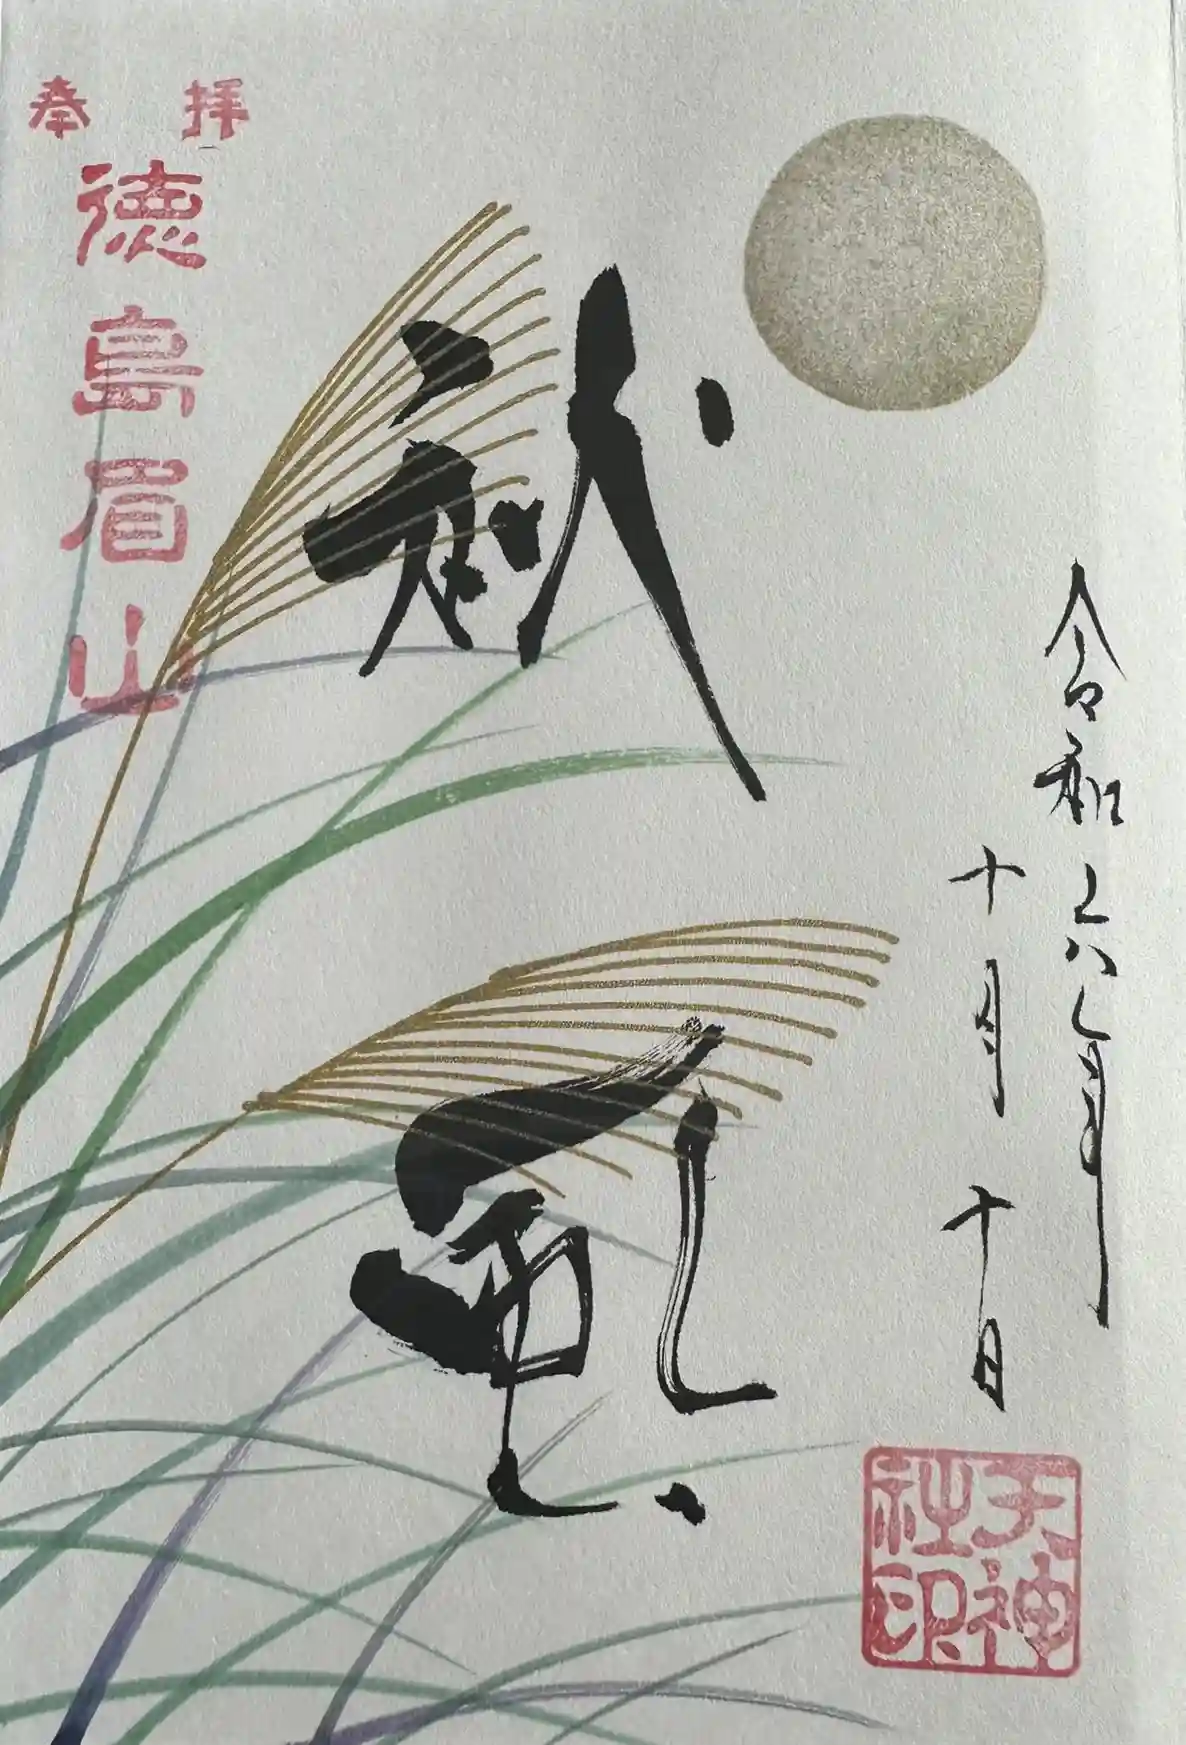 令和六年
十月十日
秋風
奉拝
徳島眉山
天神社印